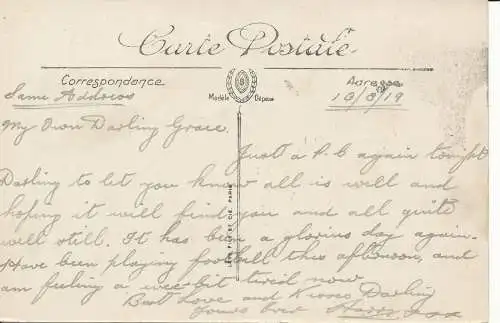 Carte Postale
Correspondance
Adresse
Modèle Déposé
Same Address
18/8/19
My Own Darling Grace.
Just a P.C again tonight
Darling to let you know all is well and
hoping it will find you and all quite
well still. It has been a glorius day again.
Have been playing football this afternoon, and
am feeling a wee bit tired now
Best Love and Kisses Darling
Yours Ever Harry xxx
LEVY FILS ET CIE PARIS